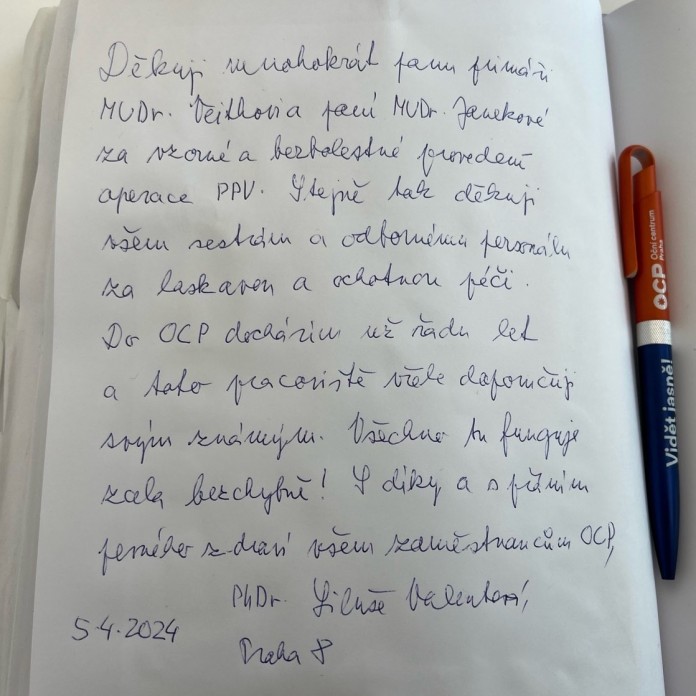 Děkuji mnohokrát panu primáři
MUDr. Veithovi a paní MUDr. Janekové
za vzorné a bezbolestné provedení
operace PPV. Stejně tak děkuji
všem sestrám a odbornému personálu
za laskavou a ochotnou péči.
Do OCP docházím už řadu let
a toto pracoviště vřele doporučuji
svým známým. Všechno tu funguje
zcela bezchybně! S díky a s přáním
pevného zdraví všem zaměstnancům OCP,
PhDr. Libuše Valentová,
5.4.2024
Praha 8
OCP Oční centrum Praha
Vidět jasně!